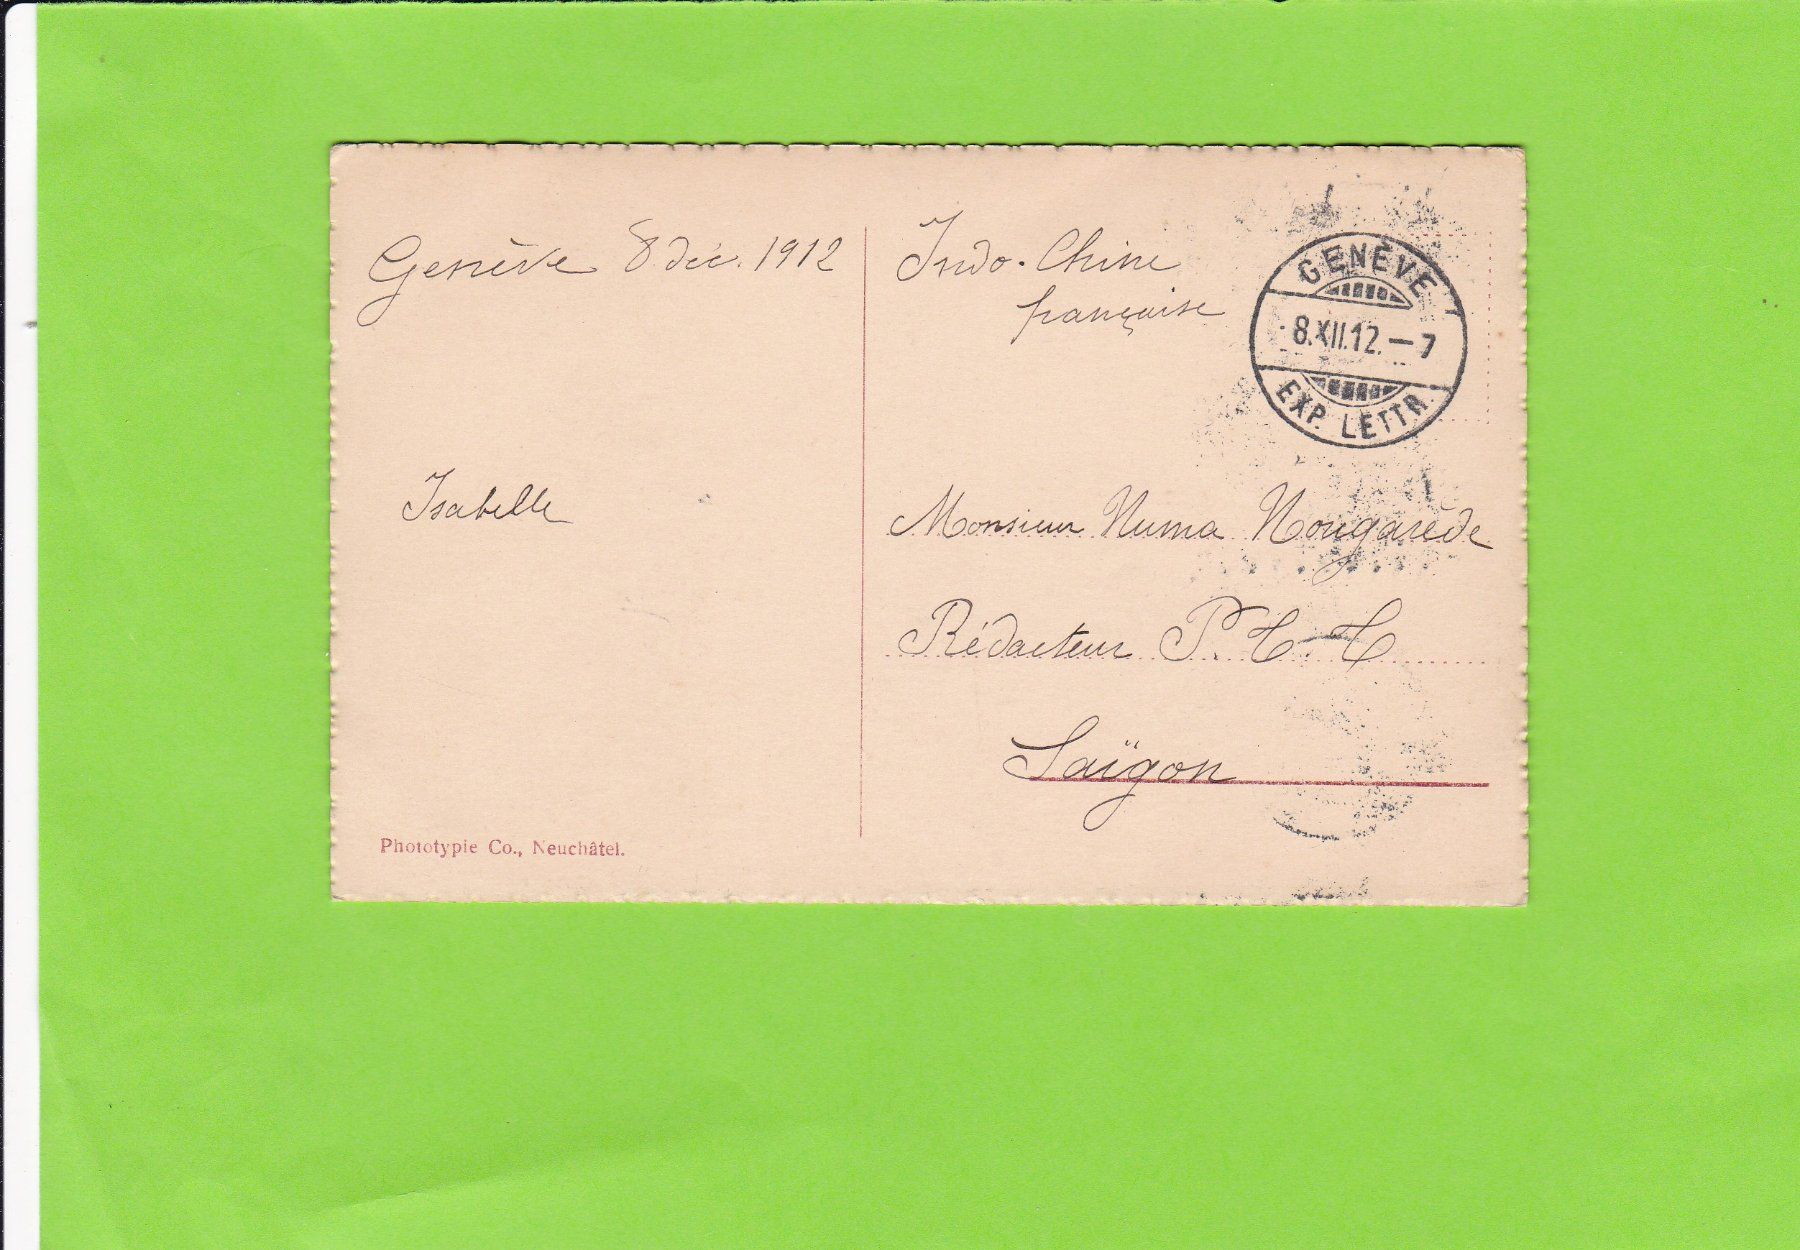 Genève 8 déc. 1912
Isabelle
Phototypie Co., Neuchâtel.
Indo-Chine
française
GENÈVE
8.XII.12.—7
EXP. LETTR.
Monsieur Numa Nougarède
Rédacteur P.T.T
Saïgon